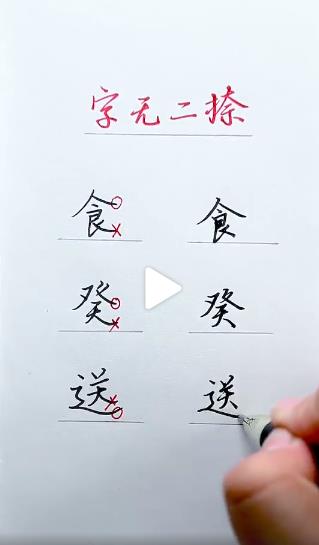 字无二捺
食 食
癸 癸
送 送